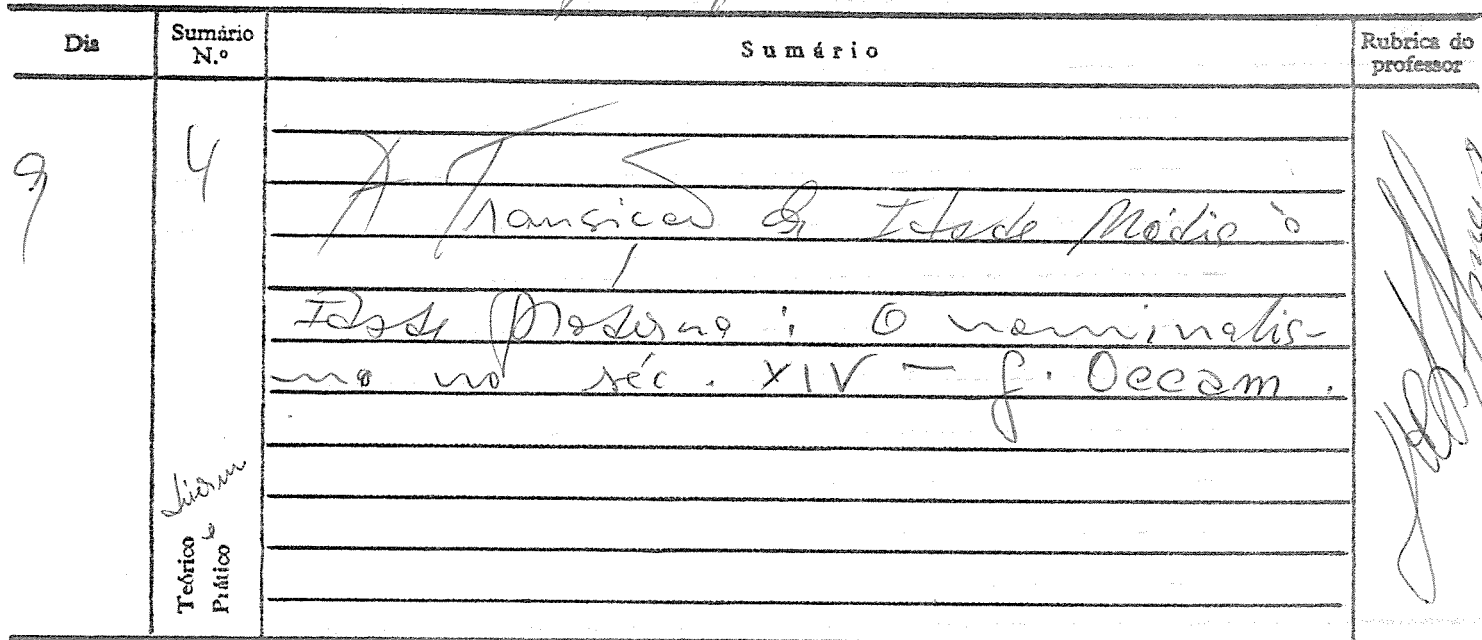 Dia
Sumário N.º
Sumário
Rubrica do professor
9
4
A Transição da Idade Média à
Idade Moderna: O nominalis-
mo no séc. XIV — G. Occam.
Teórico
Prático